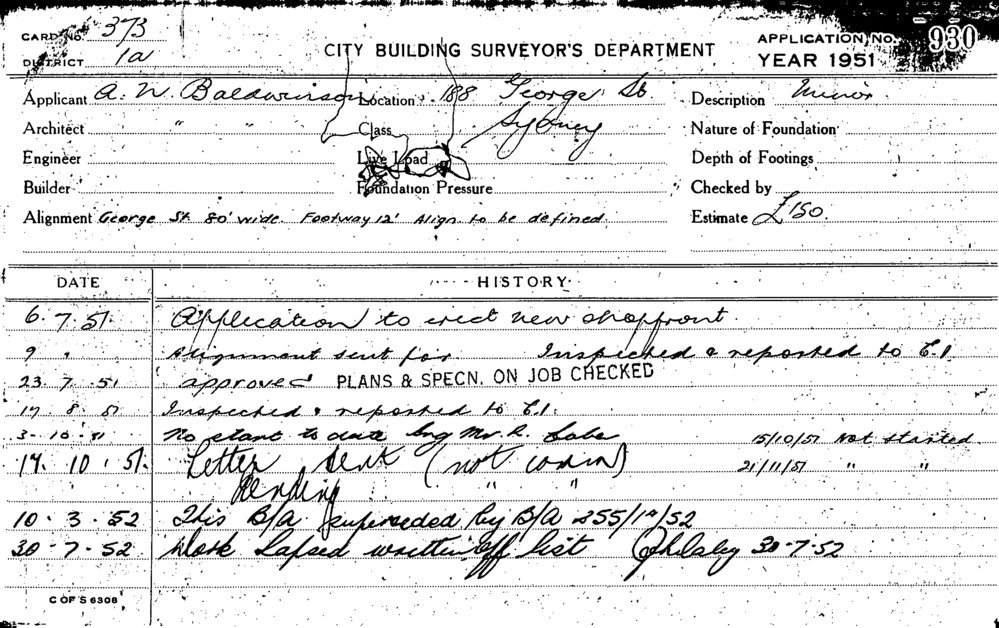 CARD No. 373
DISTRICT 1a
CITY BUILDING SURVEYOR'S DEPARTMENT
APPLICATION, No. 930
YEAR 1951
Applicant A. N. Baldwinson Location 188 George St. Description Minor
Architect " " Class Sydney Nature of Foundation
Engineer Live Load Depth of Footings
Builder Foundation Pressure Checked by
Alignment George St 80' wide. Footway 12' Align to be defined. Estimate £150.
DATE HISTORY
6. 7. 51. Application to erect new shopfront.
9 " Alignment sent for Inspected & reported to C.I.
23. 7. 51 approved PLANS & SPECN. ON JOB CHECKED
17. 8. 51 Inspected & reported to C.I.
3-10.51 No start to date Mr. R. 15/10/51 Not started
17. 10. 51. Letter sent (not comm) 21/11/51 " "
Pending " "
10. 3. 52 This B/A. superseded by B/A 255/1a/52
30-7-52 Work Lapsed written off list 30-7-52
C OF S 6308